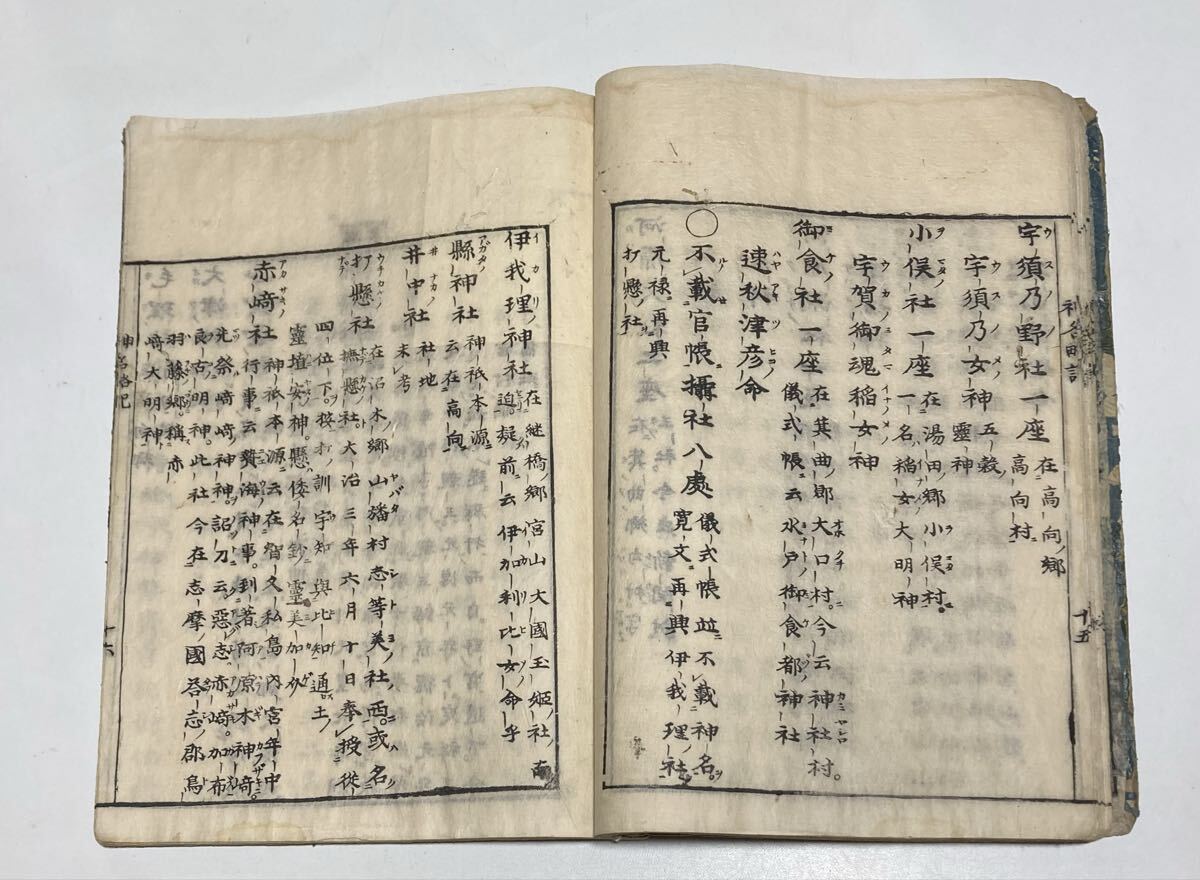 神名略記
十五
宇須乃野社一座 在高向ノ郷高向村ニ
宇須乃女神 五穀ノ霊神
小俣社一座 在湯田郷小俣村ニ。一名稲女大明神
宇賀御魂稲女神
御食社一座 在箕曲郷大口村ニ。今云神社村。
儀式帳ニ云水戸御食都神社
速秋津彦命
○不載官帳攝社八處 儀式帳並不載神名ヲ。
寛文ニ再興伊我理社
元禄ニ再興
打懸社
伊我理神社 在継橋郷宮山大國玉姫ノ社ノ南ニ
迫。擬前云伊加利比女命乎
縣神社 神祇本源云在高向
井中社 社地未考
打懸社 在沼木郷山幡村志等美ノ社ノ西ニ。或名
撫懸社。大治三年六月十日奉授従
四位下。按打訓宇知與比知通土ノ
靈埴安神。懸倭名鈔靈美加介
赤﨑社 神祇本源云在智久私島内宮年中
行事云贄海神事。到著阿原木神﨑ニ。
先祭﨑神。詔刀云。悪志赤﨑。加布
良古明神。此社今在志摩國荅志郡鳥
羽藤郷稱赤
﨑大明神
神名略記
十六